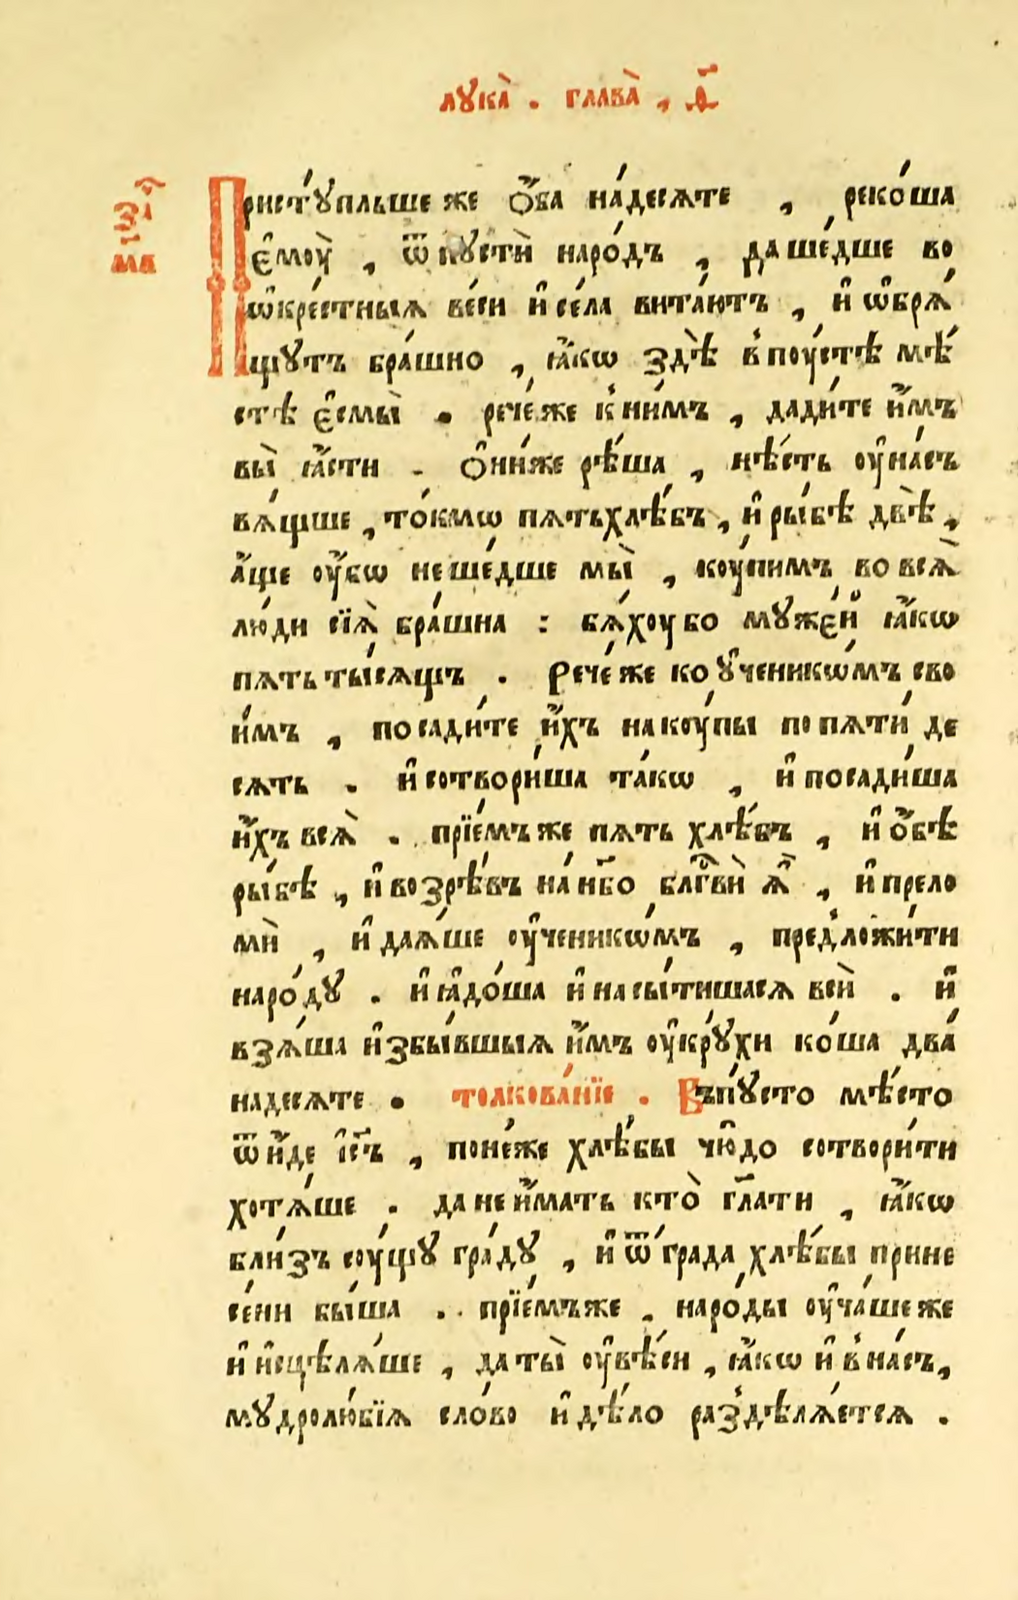 лꙋка̀ . глава̀ , ѳ҃
Пристꙋ́пльше же ѻ҆́ба на́десѧте , реко́ша
є҆моу̀ , ѿпꙋстѝ наро́дъ , да ше́дше во
ѡ҆кре́стныѧ ве́си и҆ се́ла вита́ютъ , и҆ ѡ҆брѧ́
щꙋтъ бра́шно , ꙗ҆́кѡ здѣ̀ в поу́стѣ мѣ́
стѣ є҆смы̀ . рече́ же к ни́мъ , дади́те и҆̀мъ
вы̀ ꙗ҆́сти . ѻ҆ни́же рѣ́ша , нѣ́сть оу҆ на́съ
вѧ́щше , то́кмѡ пѧть хлѣ́бъ , и҆ ры́бѣ двѣ̀ ,
а҆́ще оу҆́бѡ не ше́дше мы̀ , коу́пимъ во всѧ̀
лю́ди сїѧ̀ бра́шна : бѧ́хоу бо мꙋже́й ꙗ҆́кѡ
пѧть ты́сѧщъ . Рече́ же ко ᲂу҆ченикѡ́мъ сво
и́мъ , посади́те и҆́хъ на коу́пы по пѧти́ де
сѧть . и҆ сотвори́ша та́кѡ , и҆ посади́ша
и҆́хъ всѧ̀ . прїе́мъ же пѧть хлѣ́бъ , и҆ ѻ҆́бѣ
ры́бѣ , и҆ возрѣ́въ на́ нб҃о блгⷭ҇вѝ ѧ҆̀ , и҆ прело
мѝ , и҆ даѧ́ше оу҆ченикѡ́мъ , предложи́ти
наро́дꙋ . и҆ ꙗ҆до́ша и҆ насы́тишасѧ всѝ . и҆
взѧ́ша и҆збы́вшыѧ и҆̀мъ оу҆крꙋ́хи ко́ша два́
надесѧте . толкова́нїе . Въ пꙋ́сто мѣ́сто
ѿи҆́де і҆с҃ъ , поне́же хлѣ́бы чю́до сотвори́ти
хотѧ́ше . да не и҆́мать кто̀ гл҃ати , ꙗ҆́кѡ
бли́зъ соу́щꙋ гра́дꙋ , и҆ ѿ гра́да хлѣ́бы прине
се́ни бы́ша . прїе́мъ же , наро́ды оу҆ча́ше же
и҆ и҆сцѣлѧ́ше , да ты̀ оу҆вѣ́си , ꙗ҆́кѡ и҆ в на́съ ,
мꙋдролю́бїѧ сло́во и҆ дѣ́ло раздѣлѧ́етсѧ .